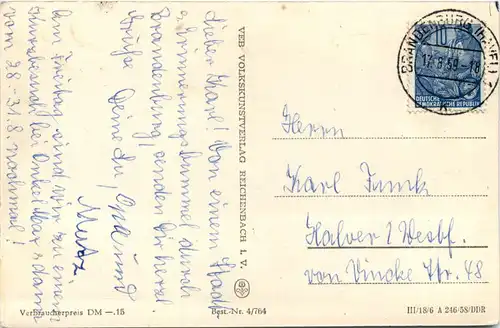 Lieber Karl! Von einem Stadt
u. Erinnerungsbummel durch
Brandenburg, senden Dir herzl
Grüße Deine Lu, Opa und
Mutz
Am Freitag sind wir zu einem
bei Onkel Max u. dann
vom 28-31.8. nochmal!
Verbraucherpreis DM —.15
VEB VOLKSKUNSTVERLAG REICHENBACH I. V.
Best.-Nr. 4/764
BRANDENBURG (HAVEL) 1
17.8.59-18
10
DEUTSCHE
DEMOKRATISCHE REPUBLIK
Herrn
Karl Funck
Halver i Westf.
von Vincke Str. 48
III/18/6 A 246/58/DDR